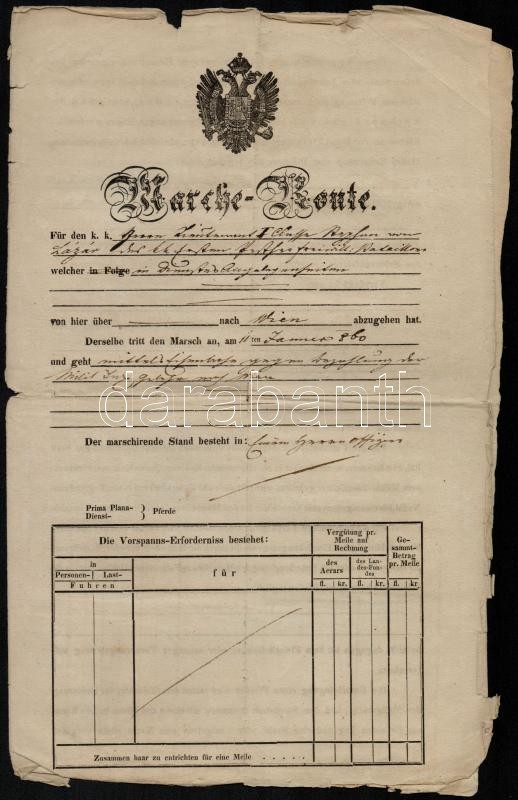 Marche-Route.
Für den k. k. Herrn Lieutenant I Classe Stephan von
Lázár des Ersten Pesther freiwill: Bataillon
welcher in Folge in Dienstes Angelegenheiten
von hier über nach Wien abzugehen hat.
Derselbe tritt den Marsch an, am 11 ten Jänner 860
und geht mittelst Eisenbahn gegen Bezahlung der
Milit nach Wien
darabanth
Der marschirende Stand besteht in: Einem Herrn Offizier
Prima Plana-
Dienst- } Pferde
Die Vorspanns-Erforderniss bestehet:
Vergütung pr. Meile auf Rechnung
Gesammt-Betrag pr. Meile
in
Personen- Last-
Fuhren
für
des Aerars
des Landes-Fondes
fl. kr. fl. kr. fl. kr.
Zusammen baar zu entrichten für eine Meile . . . . .